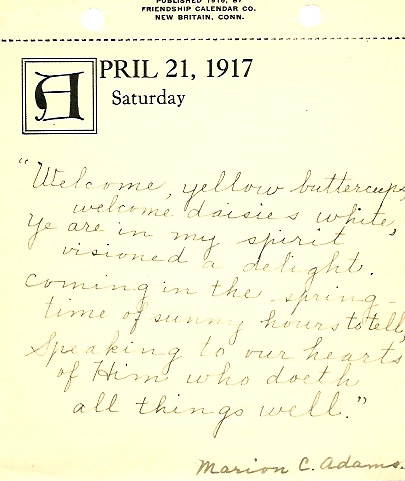 PUBLISHED 1916, BY
FRIENDSHIP CALENDAR CO.
NEW BRITAIN, CONN.
APRIL 21, 1917
Saturday
"Welcome, yellow buttercups,
welcome daisies white,
Ye are in my spirit
visioned a delight.
Coming in the spring-
time of sunny hours to tell,
Speaking to our hearts
of Him who doeth
all things well."
Marion C. Adams.